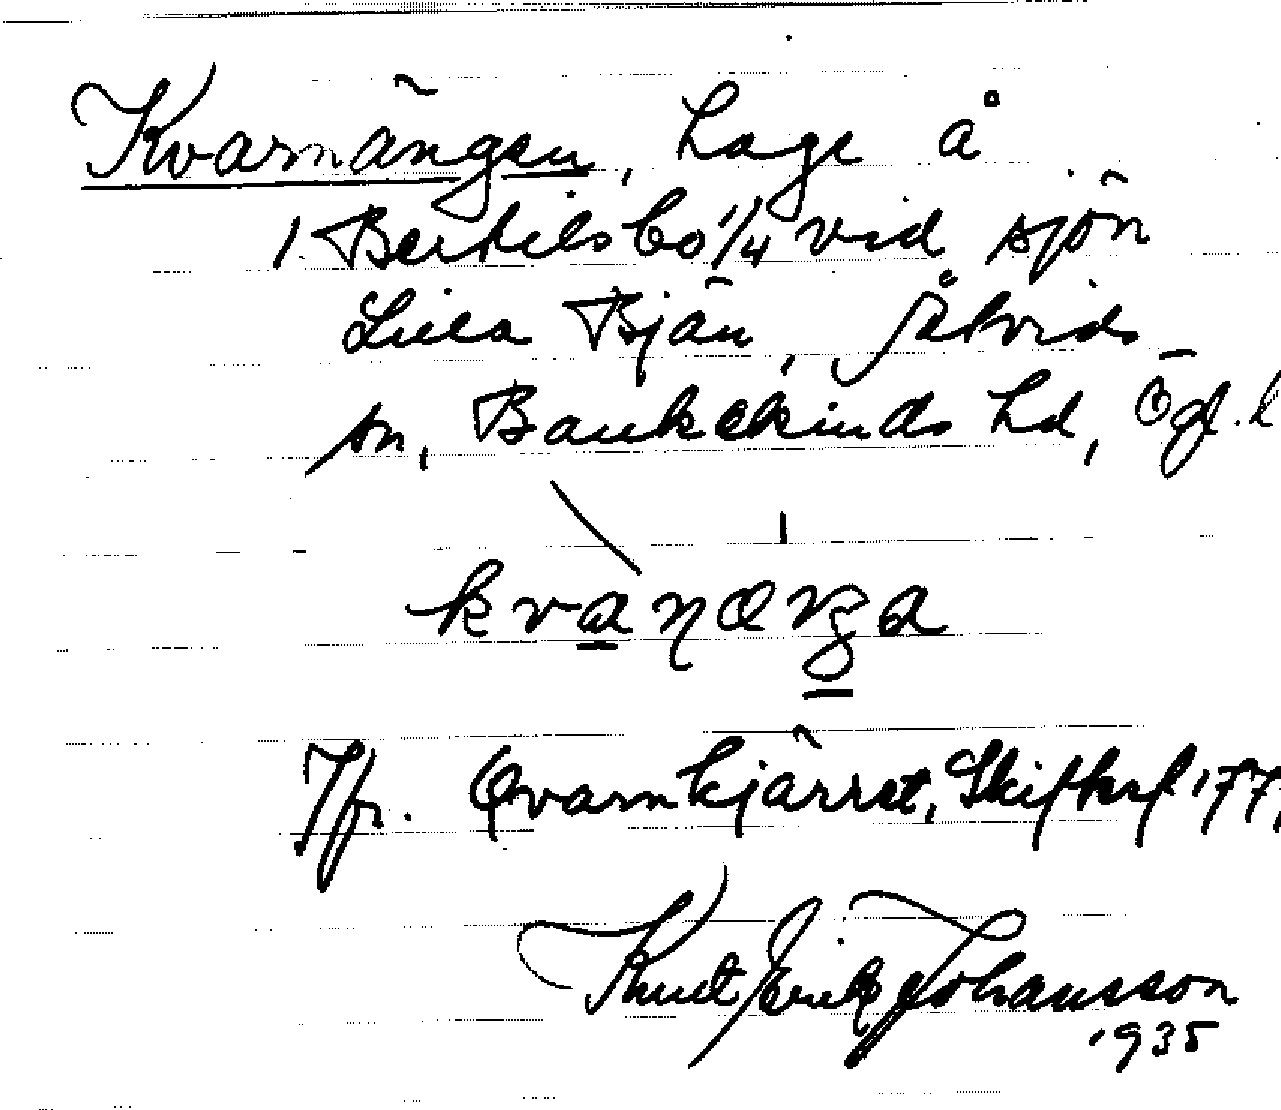 Kvarnängen, hage å
1 Bertilsbo 1/4 vid sjön
Lilla Bjän, Åtvids
sn, Bankekinds hd, Ögl. l
kvanæŋga
Jfr. Qvarnkjärret, Skifthnl 177
Knut Erik Johansson
1935